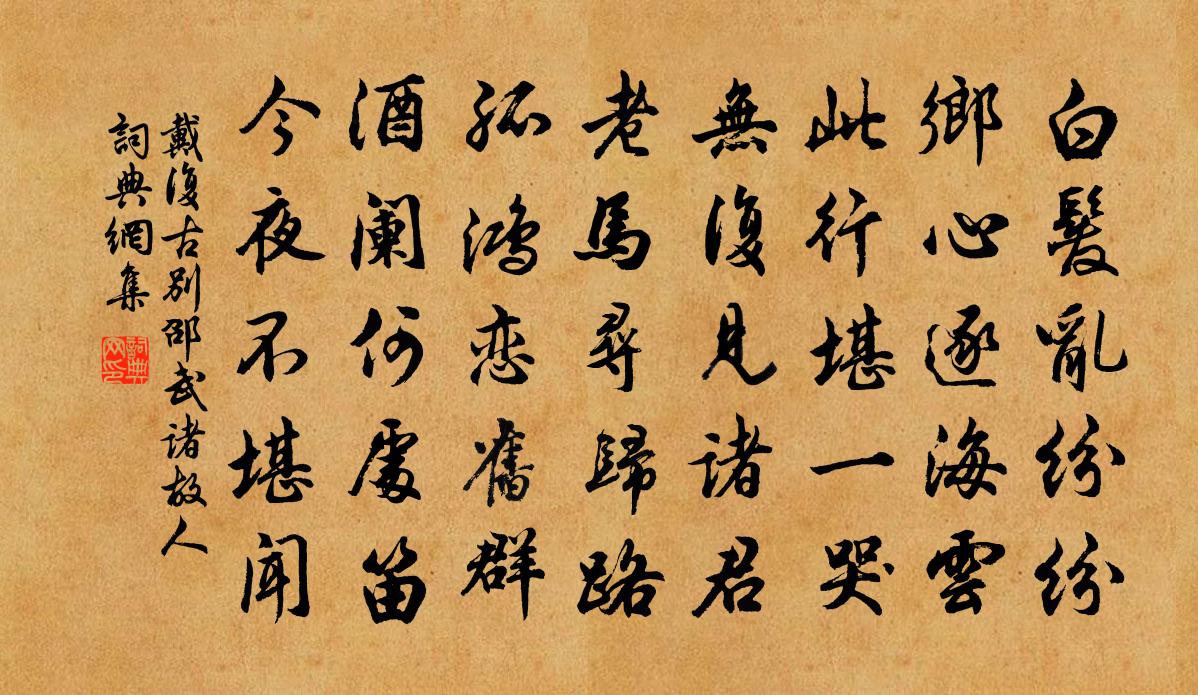 白髮亂紛紛
鄉心逐海雲
此行堪一哭
無復見諸君
老馬尋歸路
孤鴻恋舊群
酒阑何處笛
今夜不堪闻
戴復古別邵武诸故人
詞典網集
詞典网印